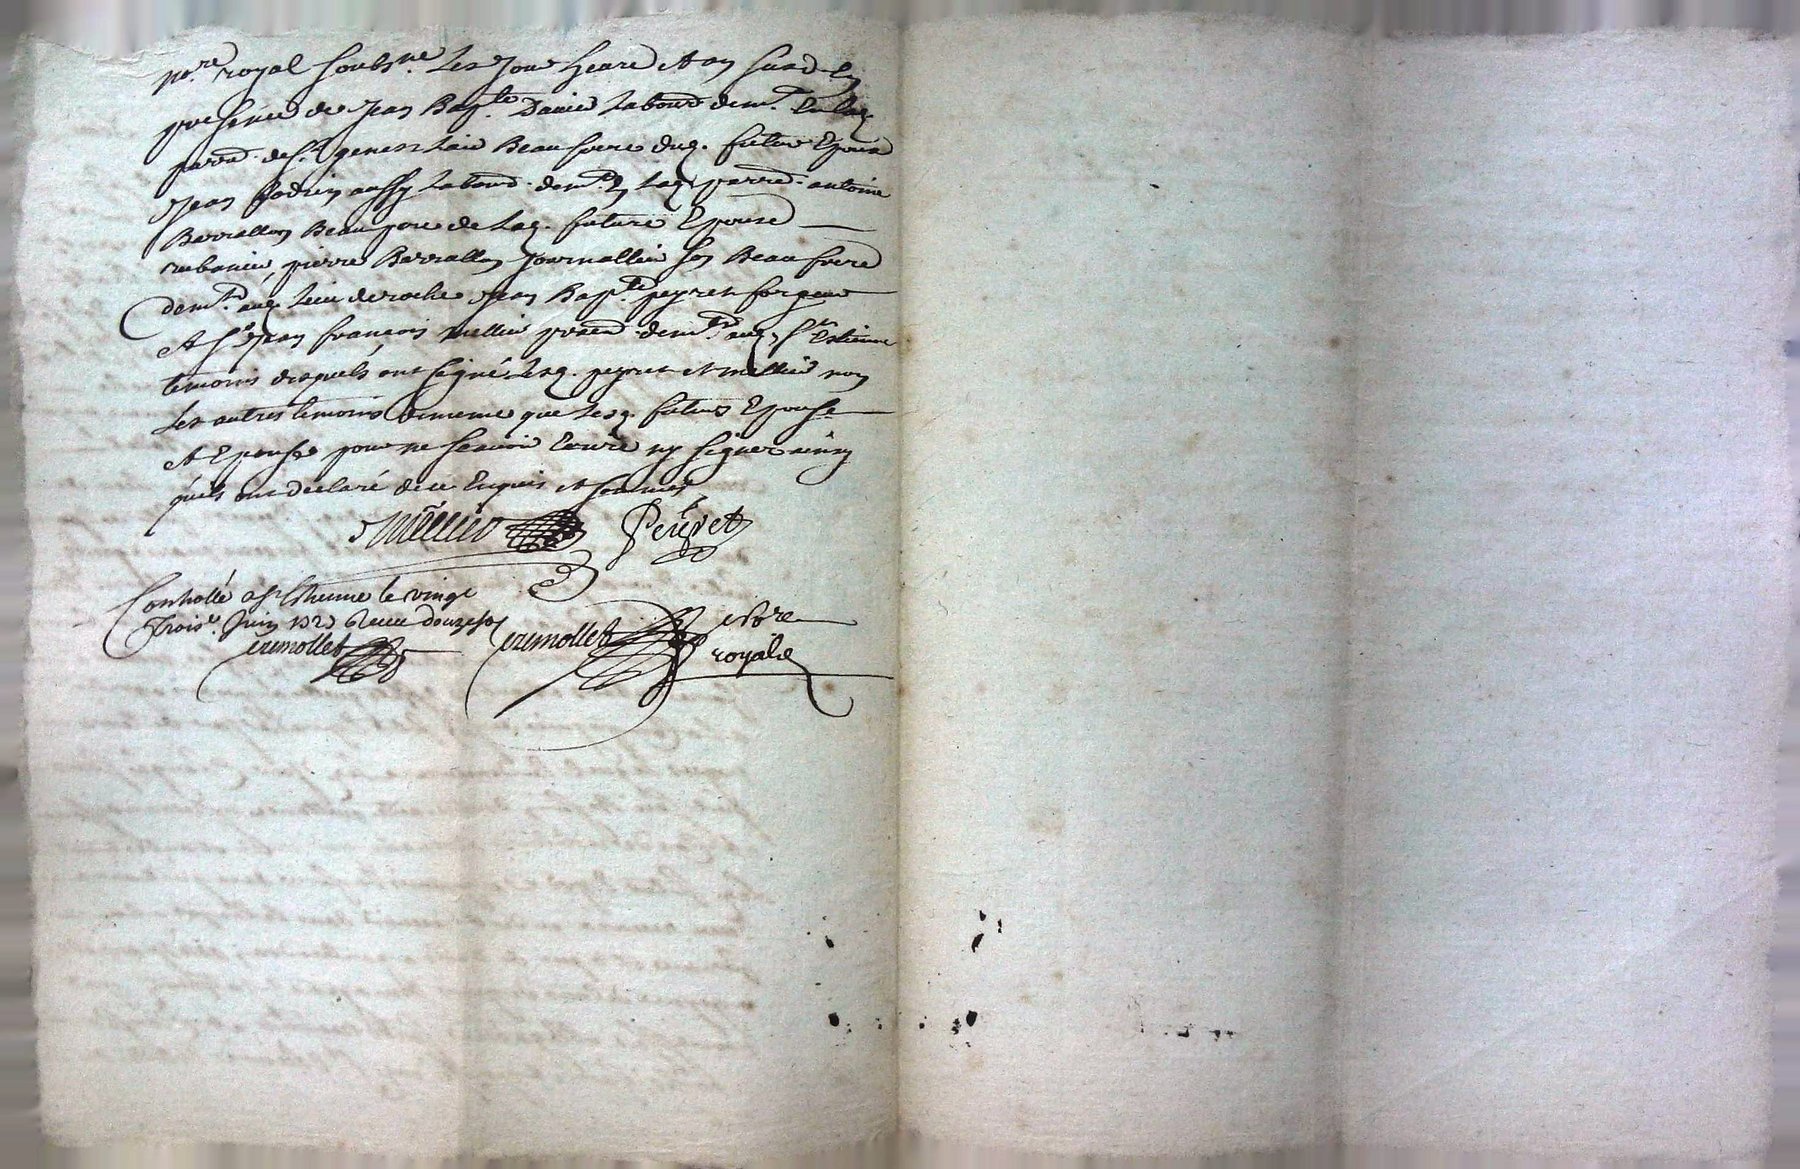 no.re royal soubsne. Les Jour heure et an susd. En
presence de Jean Bapte. David Labour. demt. En lad.
parr. de st. genest Lair Beau frere dud. futur Epoux
Jean aussy Labour. demt. En lad. parr. antoine
Barrallon Beau pere de Lad. future Epouse
rubanier, pierre Barrallon Journallier son Beau frere
demt. aud. Lieu deroche Jean Bapte. peyret forgeur
et sr. Jean françois mellier prard. demt. aud. st. Estienne
temoins desquels ont signé Lesd. peyret et mellier non
Les autres temoins de meme que Lesd. futurs Epoux
et Epouse pour ne scavoir Ecrire ny signer ainsy
quils ont declaré de ce Enquis et sommés
Mellier Peyret
Controllé a st. Etienne le vingt
Trois. Juin recu douze s
cremollet cremollet notre
royal